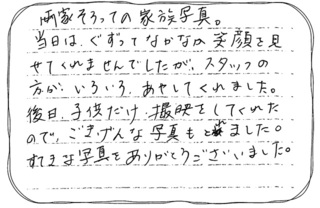 両家そろっての家族写真。
当日は、ぐずってなかなか笑顔を見
せてくれませんでしたが、スタッフの
方が、いろいろ、あやしてくれました。
後日、子供だけ、撮映をしてくれた
ので、ごきげんな写真もとれました。
すてきな写真をありがとうございました。